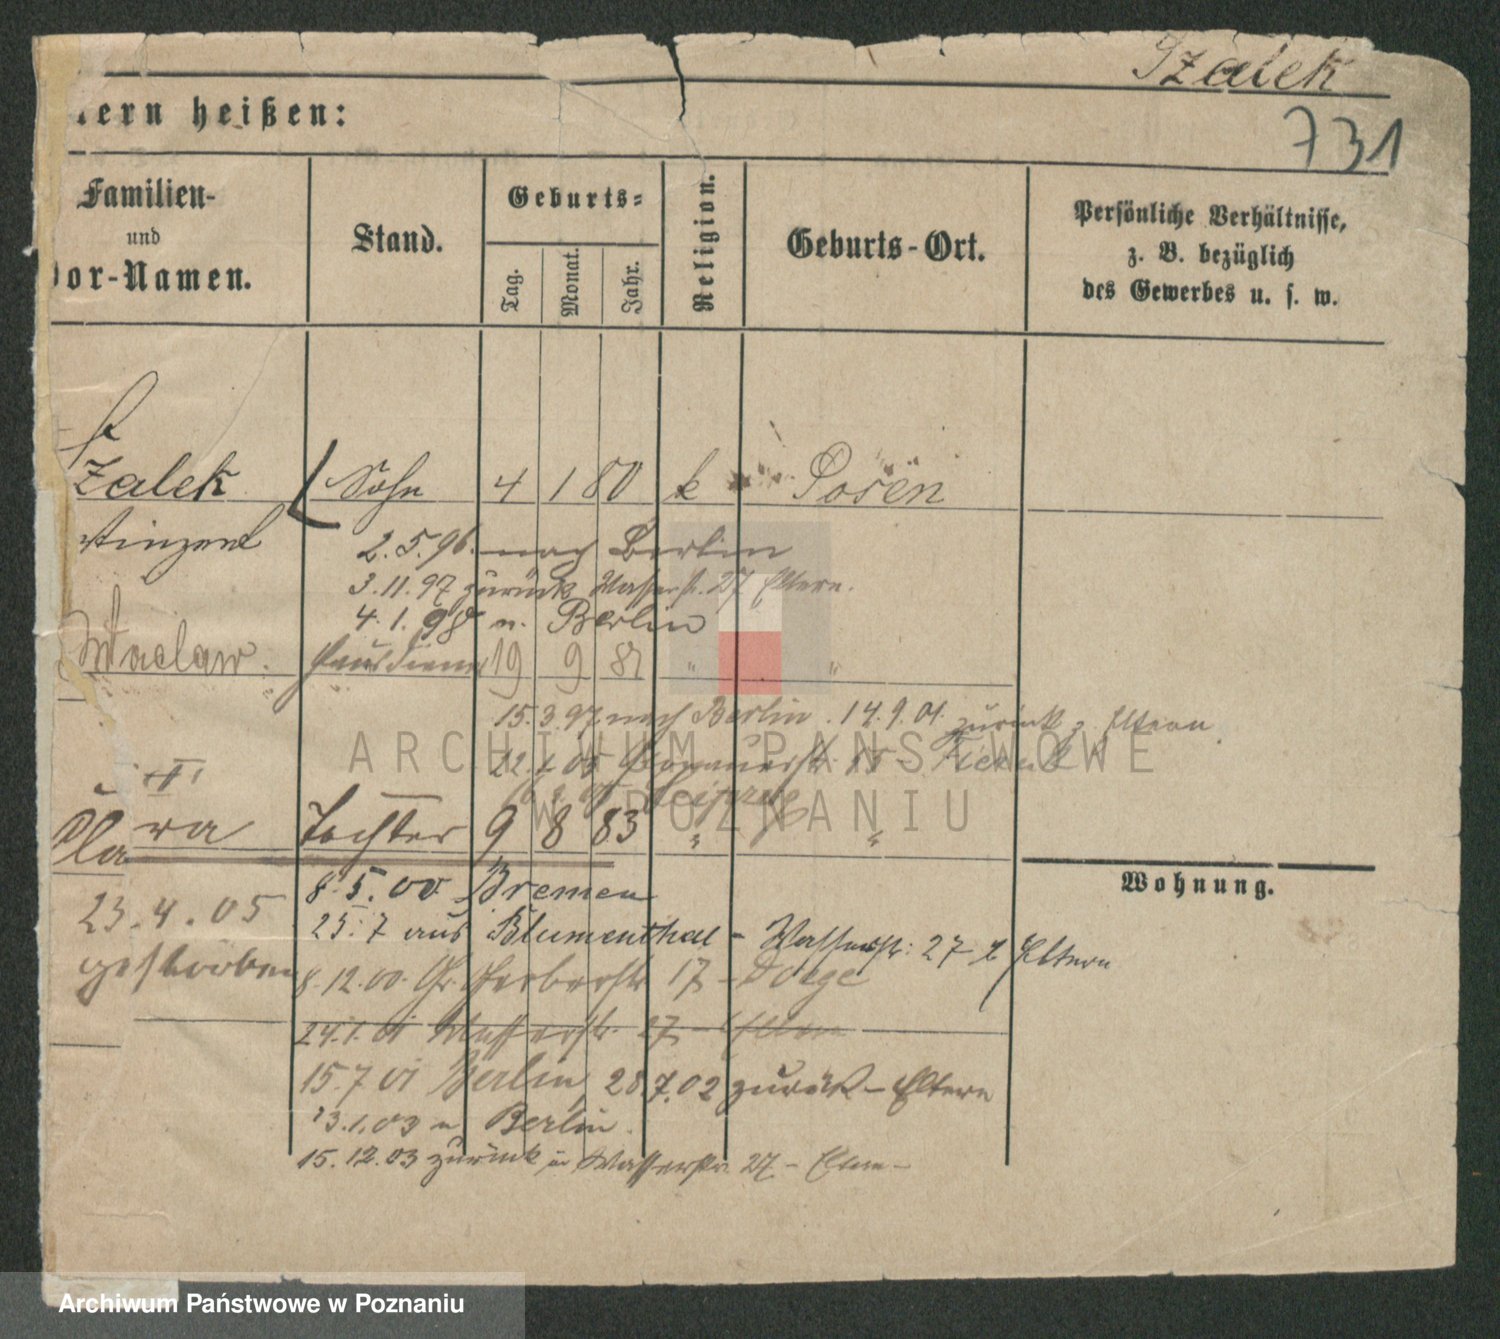 Szalek
731
tern heißen:
Familien-
und
Vor-Namen.
Stand.
Geburts-
Tag.
Monat.
Jahr.
Religion.
Geburts-Ort.
Persönliche Verhältnisse,
z. B. bezüglich
des Gewerbes u. s. w.
Szalek Sohn 4 1 80 k Posen
Vinzent
2.5.96. nach Berlin
3.11.97 zurück Wasserstr. 27 Eltern.
4.1.98 n. Berlin
Waclaw. Hausdiener 19 9 82 " "
15.3.97 nach Berlin. 14.9.01 zurück z. Eltern
ARCHIWUM PAŃSTWOWE
W POZNANIU
Tochter 9 8 83 " "
Wohnung.
8.5.00 Bremen
23.4.05
25.7 aus Blumenthal - Wasserstr: 27 Eltern
gestorben
8.12.00. Gr. Gerberstr 17 -
24.1.01 Wasserstr. 27 - Eltern
15.7.01 Berlin, 28.7.02 zurück - Eltern
13.1.03 n Berlin.
15.12.03 zurück Wasserstr. 27 -
Archiwum Państwowe w Poznaniu